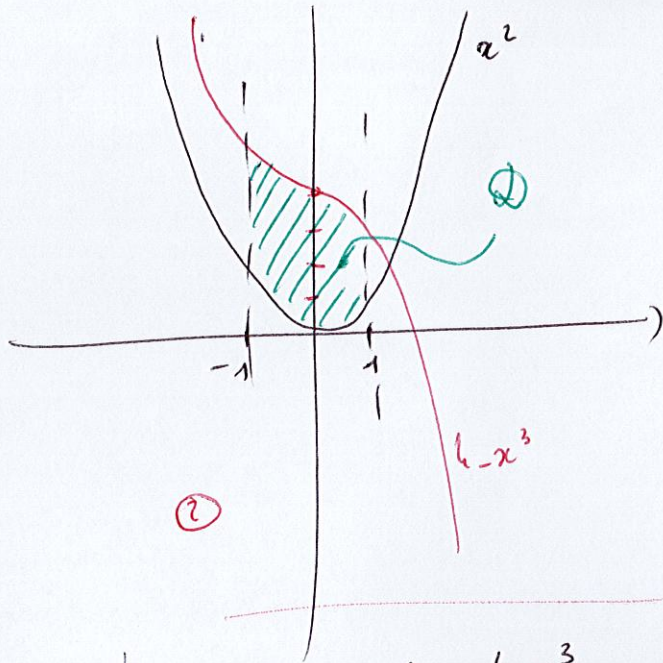 x²
D
-1
1
4-x³
2
3